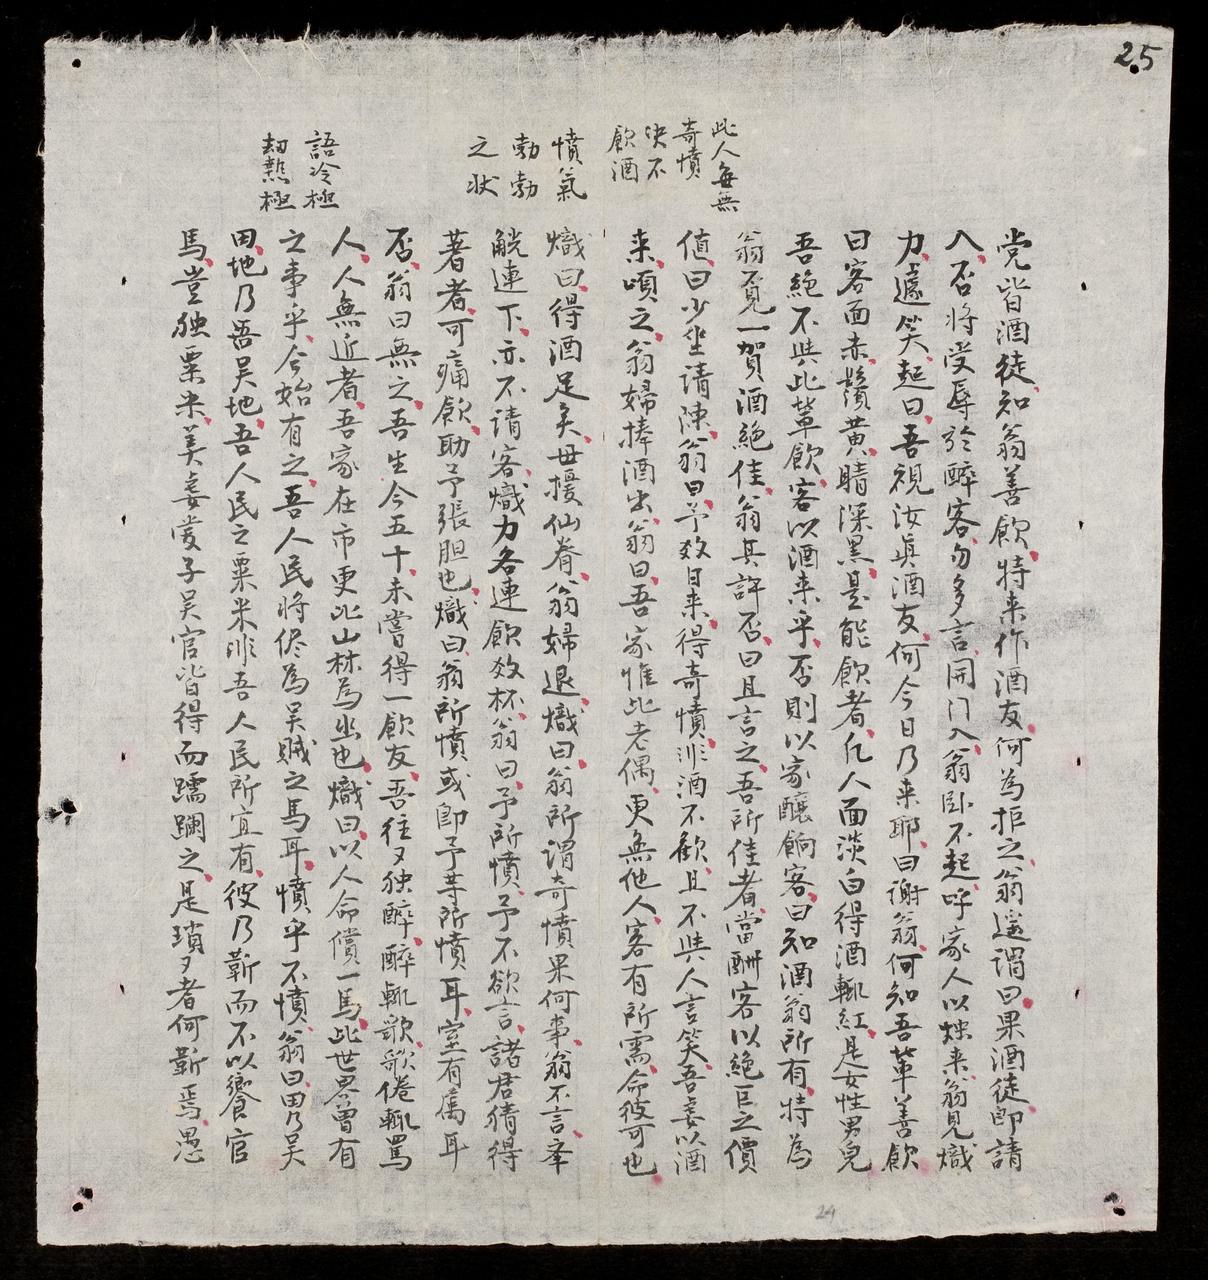 25
此人每無
奇憤
決不
飲酒
憤氣
勃勃
之状
語冷極
刼熱極
党皆酒徒知翁善飲特来作酒友何為拒之翁遥謂曰果酒徒即請
入否将受辱於醉客勿多言開门入翁卧不起呼家人以燭来翁見熾
力遽笑起曰吾視汝真酒友何今日乃来耶曰謝翁何知吾軰善飲
曰客面赤鬚黄睛深黑是能飲者凢人面淡白得酒輒紅是女性男兒
吾絶不與此軰飲客以酒来乎否則以家釀餉客曰知酒翁所有特為
翁覓一賀酒絶佳翁其許否曰且言之吾所佳者當酬客以絶巨之價
值曰少坐請陳翁曰予数日来得奇憤非酒不歓且不與人言笑吾妻以酒
来頃之翁婦捧酒出翁曰吾家惟此老偶更無他人客有所需命彼可也
熾曰得酒足矣毋擾仙眷翁婦退熾曰翁所謂奇憤果何事翁不言牽
觥連下亦不請客熾力各連飲数杯翁曰予所憤予不欲言諸君猜得
著者可痛飲助予張胆也熾曰翁所憤或即予等所憤耳室有属耳
否翁曰無之吾生今五十未嘗得一飲友吾往々独醉醉輒歌歌倦輒罵
人人無近者吾家在市更此山林為幽也熾曰以人命償一馬此世界曾有
之事乎今始有之吾人民将侭為吴賊之馬耳憤乎不憤翁曰田乃吴
田地乃吾吴地吾人民之粟米非吾人民所宜有彼乃靳而不以饗官
馬豈独粟米美妾愛子吴官皆得而蠕躙之是瑣々者何靳焉愚
24